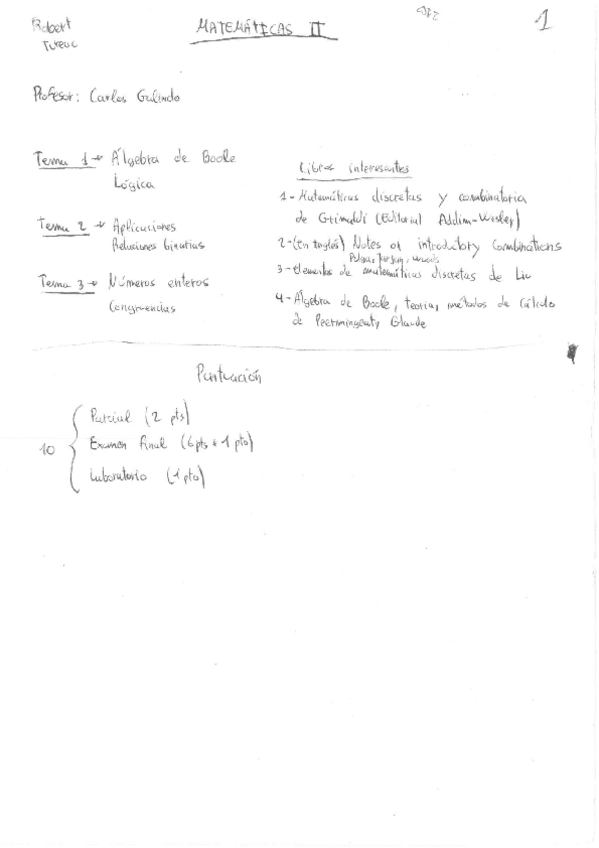 Robert
MATEMÁTICAS II
1
Profesor: Carlos Galindo
Tema 1 → Álgebra de Boole
Lógica
Tema 2 → Aplicaciones
Relaciones binarias
Tema 3 → Números enteros
Congruencias
Libros interesantes
1 - Matemáticas discretas y combinatoria
de Grimaldi (Editorial Addim-Wesley)
2 - (En Inglés) Notes on introductory combinations
3 - Elementos de matemáticas discretas de Liu
4 - Álgebra de Boole, teoría, métodos de Cálculo
de
Puntuación
10
Parcial (2 pts)
Examen final (6 pts + 1 pto)
Laboratorio (1 pto)